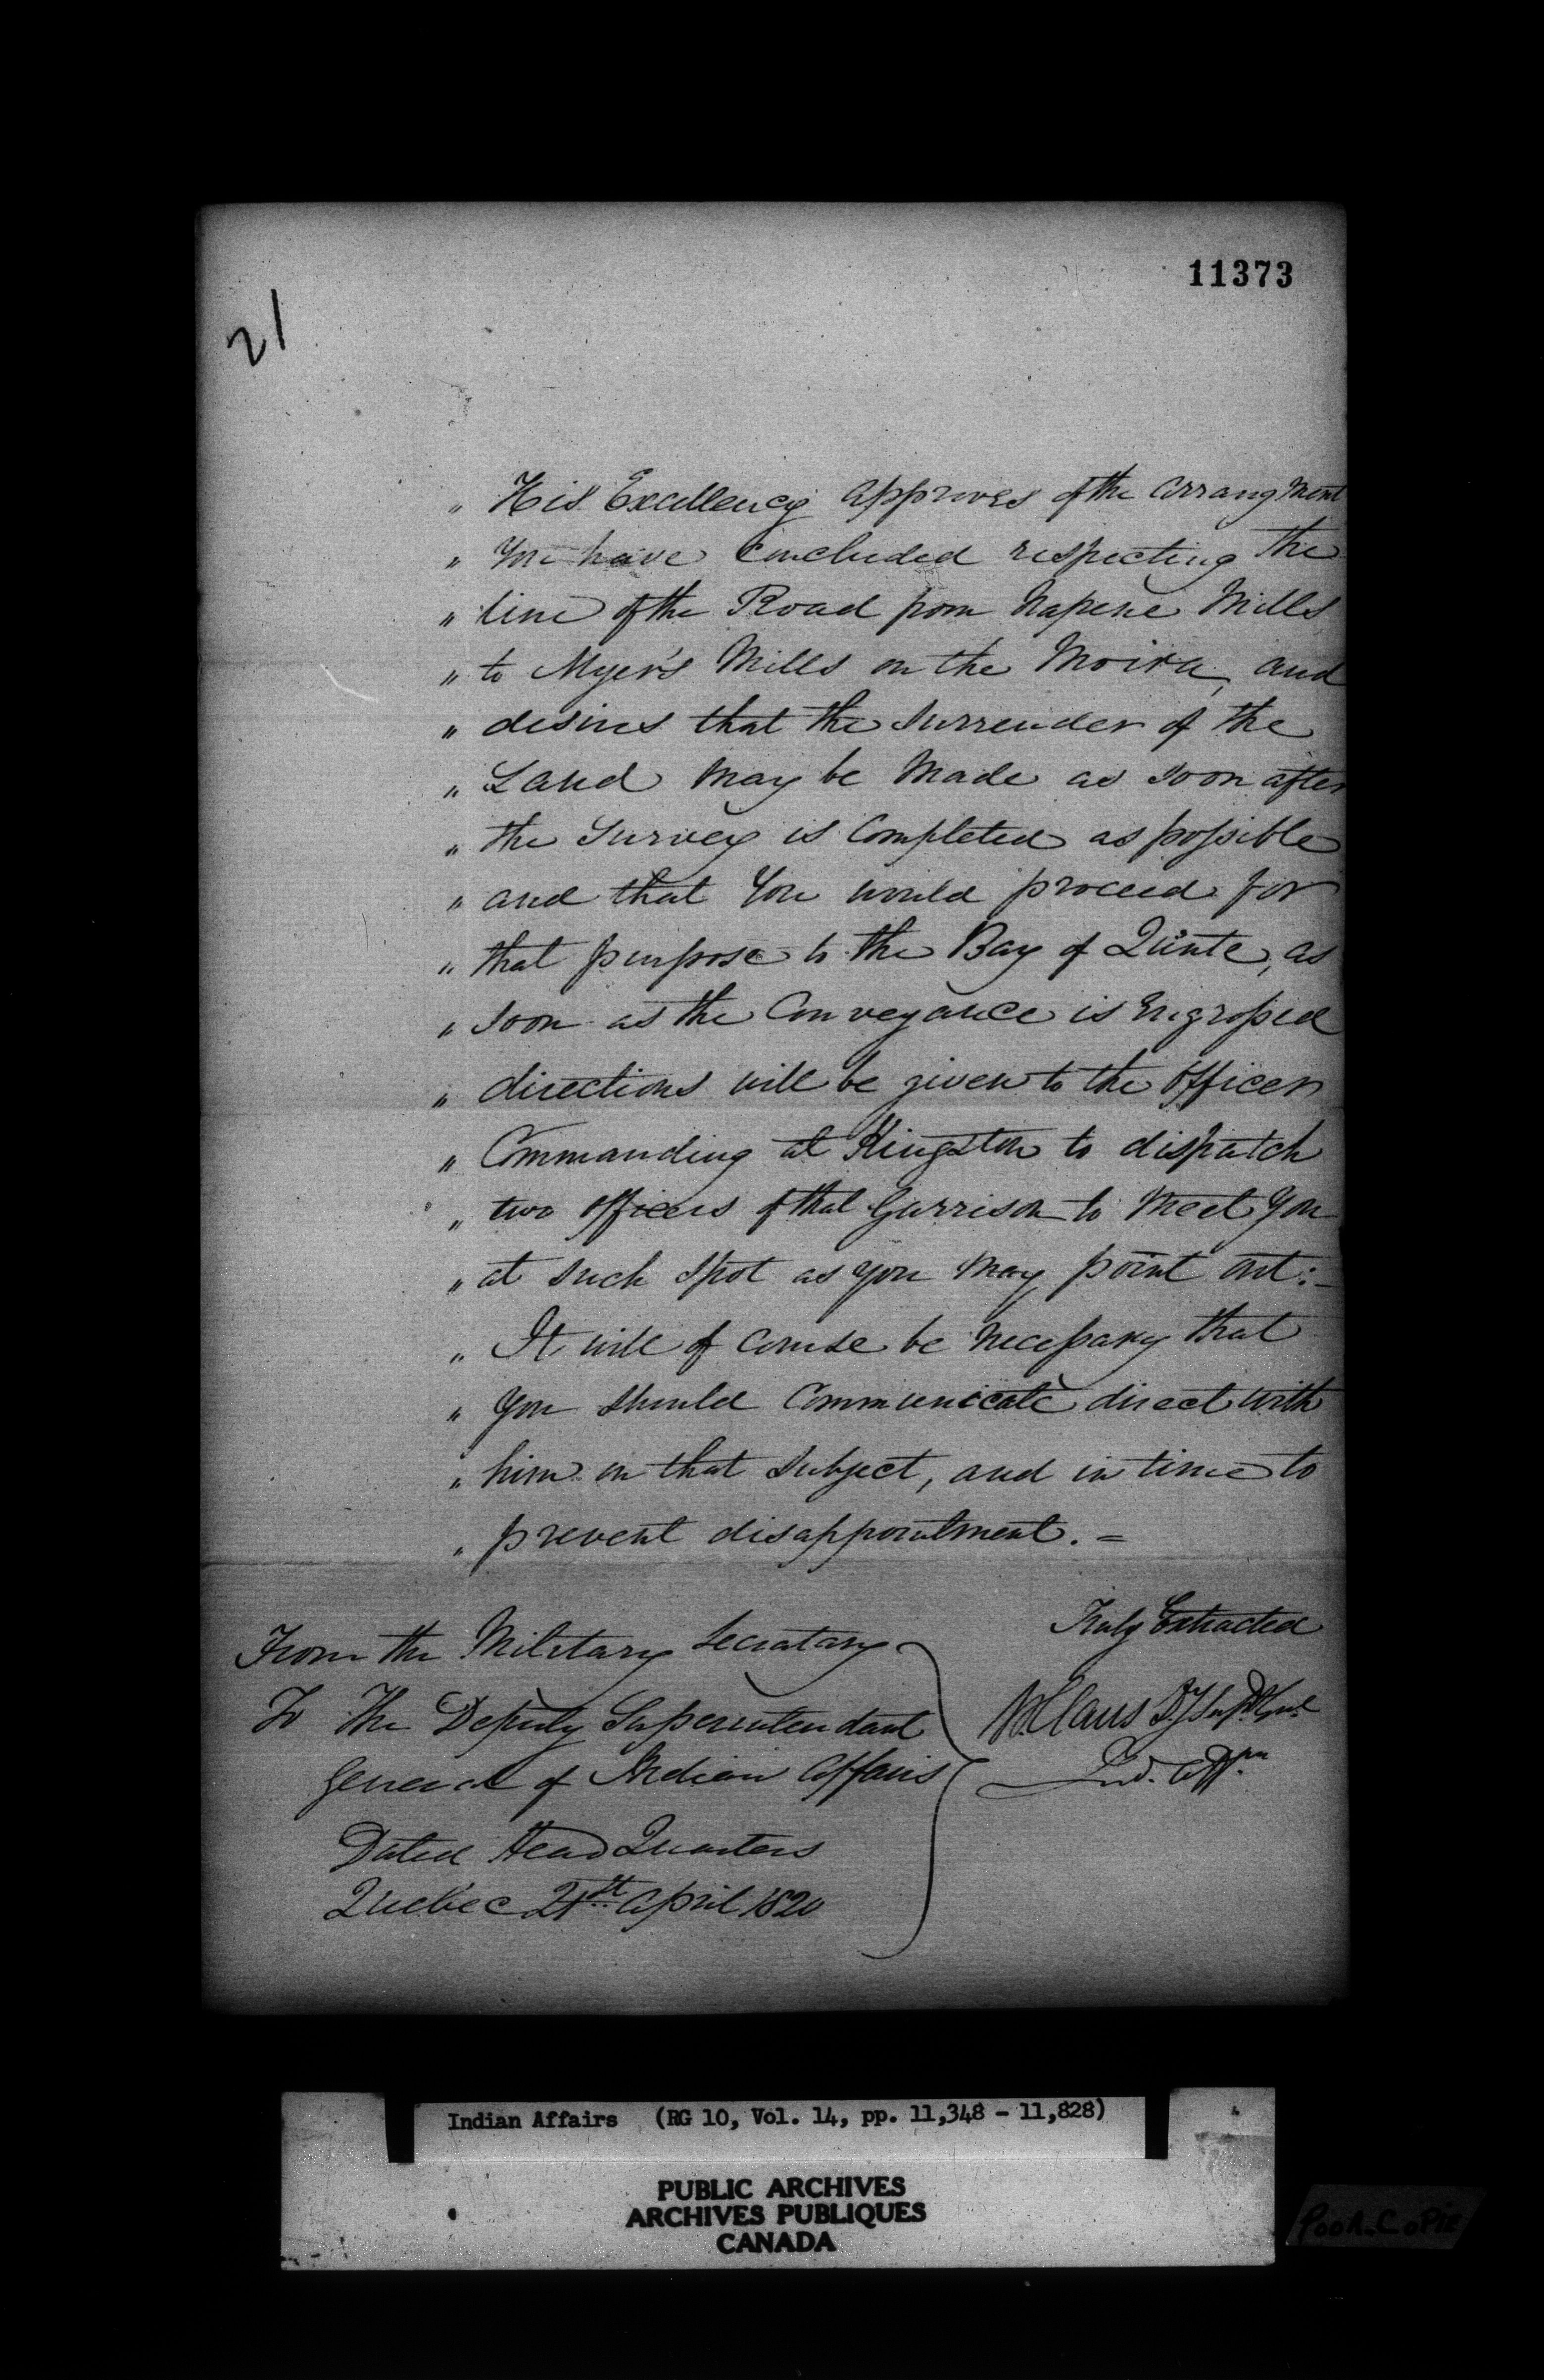 11373
21
" His Excellency approves of the arrangment
" You have Concluded respecting the
" line of the Road from Napene Mills
" to Myer's Mills on the Moira, and
" desires that the Surrender of the
" Land may be made as soon after
" the Survey is Completed as possible
" and that You would proceed for
" that purpose to the Bay of Quinte, as
" soon as the Conveyance is Engrossed
" directions will be given to the officer
" Commanding at Kingston to dispatch
" two officers of that Garrison to meet you
" at such spot as you may point out:-
" It will of course be necessary that
" you should Communicate direct with
" him on that subject, and in time to
" prevent disappointment. =
Truly Extracted
W Claus Dy Supt Genl
Ind. Affrs
From the Military Secratary
To The Deputy Superintendant
General of Indian Affairs
Dated Head Quarters
Quebec 21st April 1820
Indian Affairs (RG 10, Vol. 14, pp. 11,348 - 11,828)
PUBLIC ARCHIVES
ARCHIVES PUBLIQUES
CANADA
Poor Copie